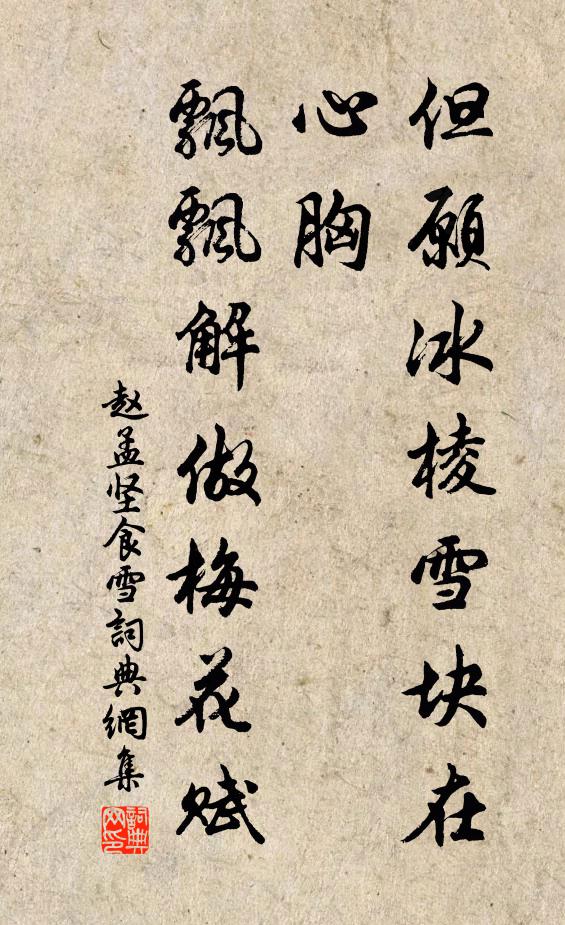 但願冰棱雪块在
心胸
飄飄解做梅花赋
赵孟坚食雪詞典網集
詞典网印